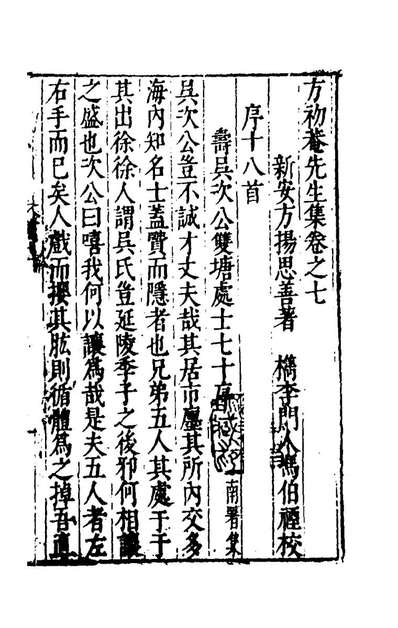 方初菴先生集卷之七
新安方揚思善著 檇李門人馮伯禋校
序十八首
壽吳次公雙塘處士七十序 南署集
吳次公豈不誠才丈夫哉其居市廛其所內交多
海內知名士蓋賈而隱者也兄弟五人其處于于
其出徐徐人謂吳氏豈延陵季子之後邪何相讓
之盛也次公曰嘻我何以讓為哉是夫五人者左
右手而已矣人戲而攖其肱則循體為之掉吾直